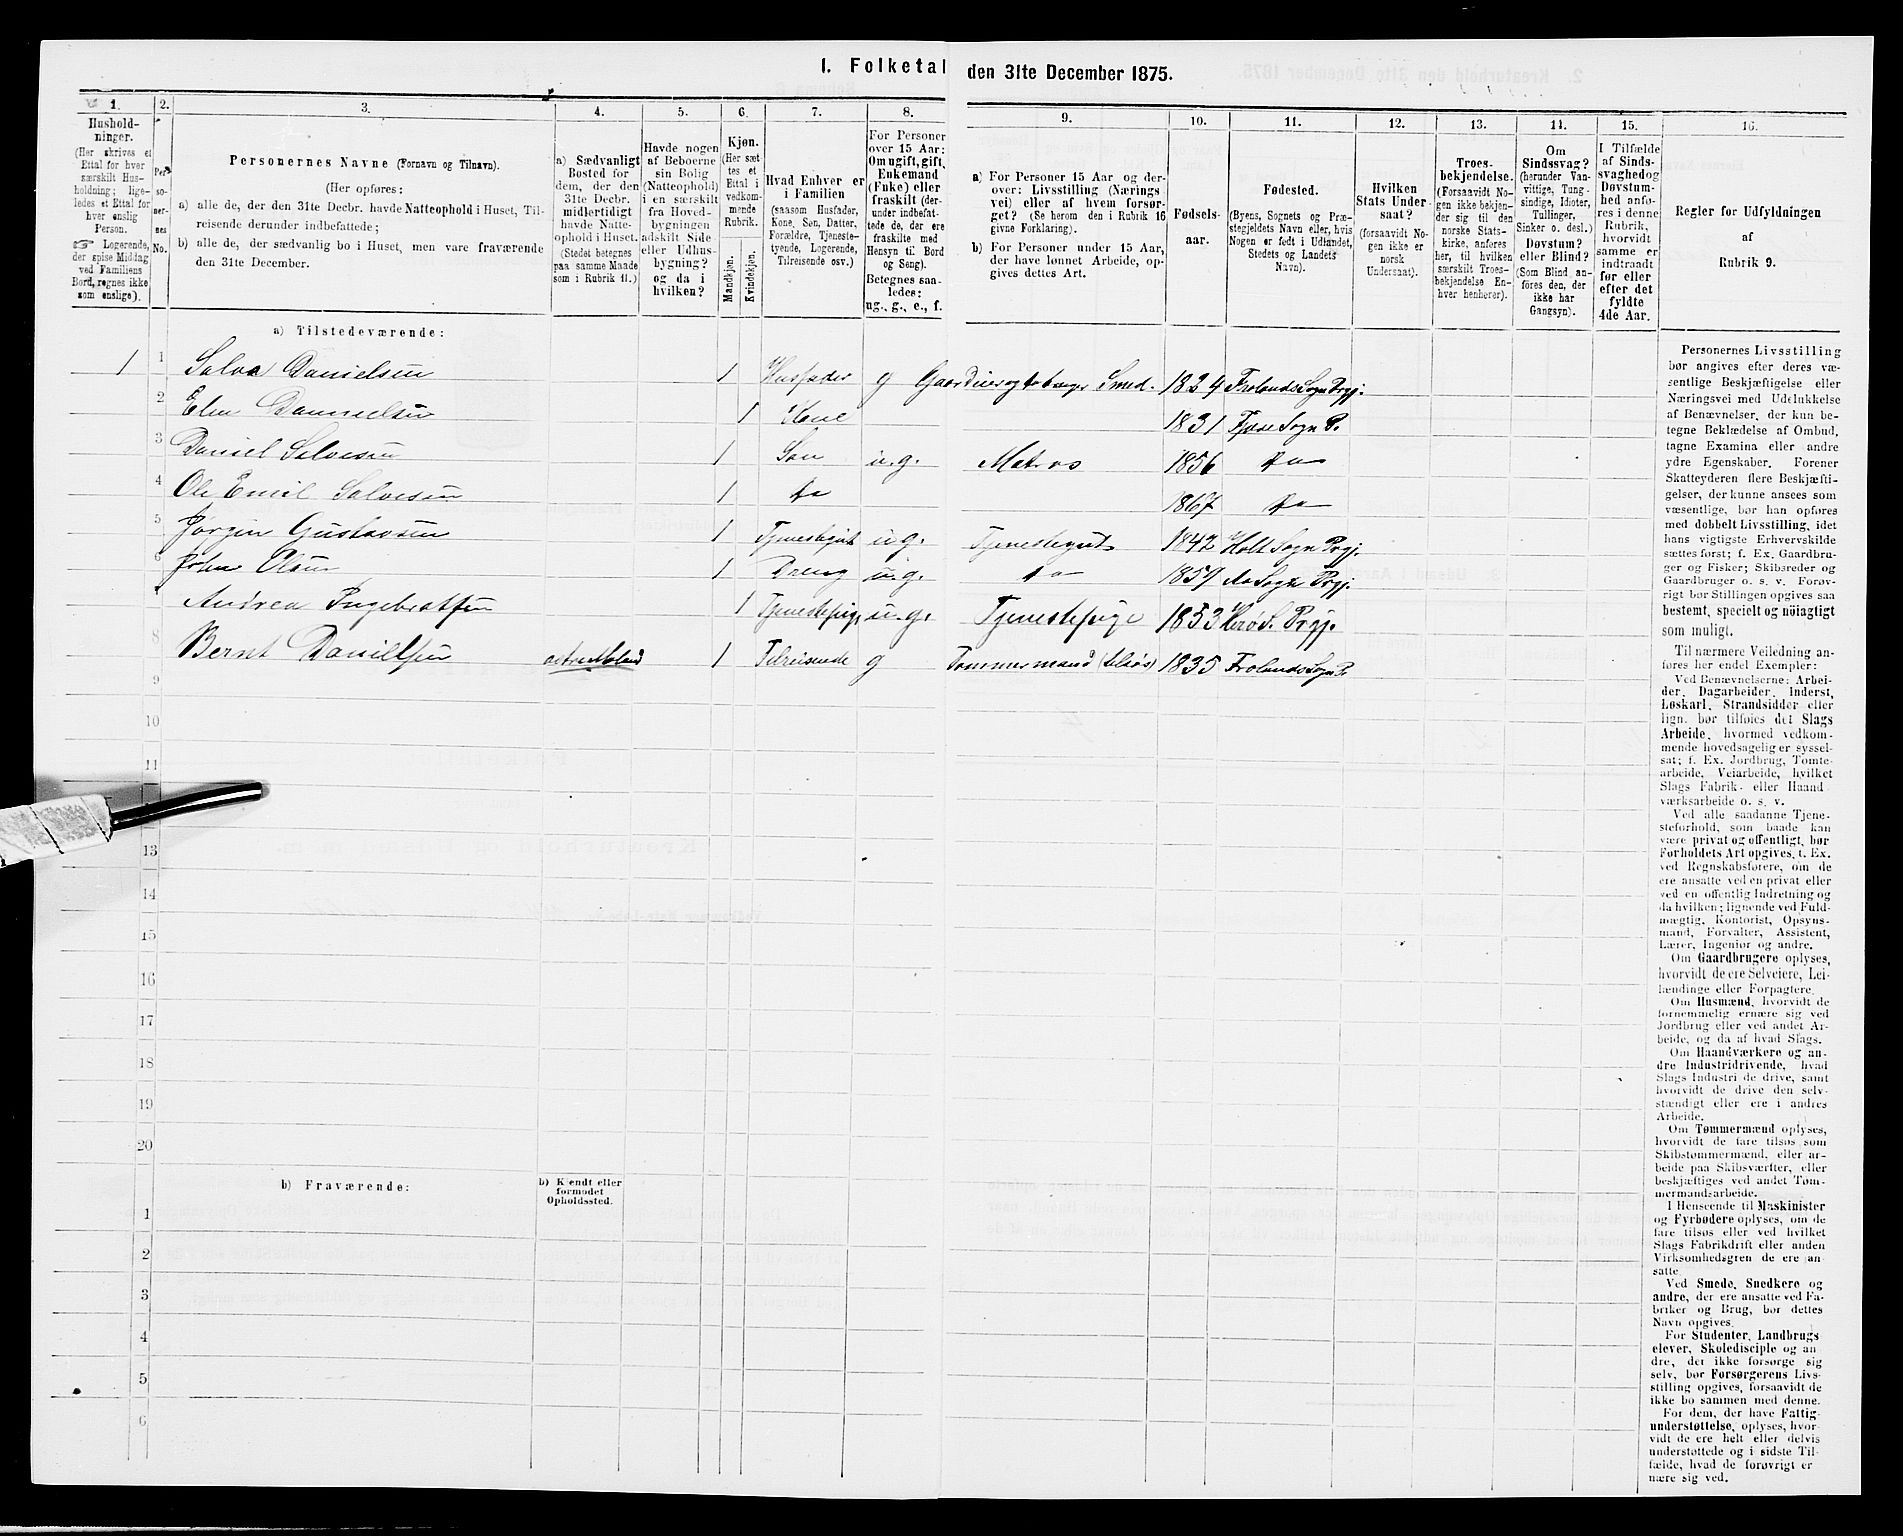 I. Folketal den 31te December 1875.
1.
Hushold-
ninger.
(Her skrives et
Ettal for hver
særskilt Hus-
holdning; lige-
ledes et Ettal for
hver enslig
Person.
☞ Logerende,
der spise Middag
ved Familiens
Bord, regnes ikke
som enslige).
2.
Per-
so-
ner-
nes
No.
3.
Personernes Navne (Fornavn og Tilnavn).
(Her opføres:
a) alle de, der den 31te Decbr. havde Natteophold i Huset, Til-
reisende derunder indbefattede;
b) alle de, der sædvanlig bo i Huset, men vare fraværende
den 31te December.
4.
a) Sædvanligt
Bosted for
dem, der den
31te Decbr.
midlertidigt
havde Natte-
ophold i Huset.
(Stedet betegnes
paa samme Maade
som i Rubrik 11.)
5.
Havde nogen
af Beboerne
sin Bolig
(Natteophold)
i en særskilt
fra Hoved-
bygningen
adskilt Side-
eller Udhus-
bygning?
og da i
hvilken?
6.
Kjøn.
(Her sæt-
tes et
Ettal i
vedkom-
mende
Rubrik.
Mandkjøn.
Kvindekjøn.
7.
Hvad Enhver er
i Familien
(saasom Husfader,
Kone, Søn, Datter,
Forældre, Tjeneste-
tyende, Logerende,
Tilreisende osv.)
8.
For Personer
over 15 Aar:
Om ugift, gift,
Enkemand
(Enke) eller
fraskilt (der-
under indbefat-
tede de, der ere
fraskilte med
Hensyn til Bord
og Seng).
Betegnes saa-
ledes:
ug., g., e., f.
9.
a) For Personer 15 Aar og der-
over: Livsstilling (Nærings-
vei) eller af hvem forsør-
get? (Se herom den i Rubrik 16
givne Forklaring).
b) For Personer under 15 Aar,
der have lønnet Arbeide, op-
gives dettes Art.
10.
Fødsels-
aar.
11.
Fødested.
(Byens, Sognets og Præ-
stegjeldets Navn eller, hvis
Nogen er født i Udlandet,
Stedets og Landets
Navn).
12.
Hvilken
Stats Under-
saat?
(forsaavidt No-
gen ikke er
norsk
Undersaat).
13.
Troes-
bekjendelse.
(Forsaavidt No-
gen ikke bekjen-
der sig til den
norske Stats-
kirke, anføres
her, til hvilken
særskilt Troes-
bekjendelse En-
hver henhører).
14.
Om
Sindssvag?
(herunder Van-
vittige, Tung-
sindige, Idioter,
Tullinger,
Sinker o. desl.)
Døvstum?
eller Blind?
(Som Blind an-
føres den, der
ikke har
Gangsyn).
15.
I Tilfælde
af Sinds-
svaghed og
Døvstum-
hed anfø-
res i denne
Rubrik,
hvorvidt
samme er
indtraadt
før eller
efter det
fyldte
4de Aar.
16.
Regler for Udfyldningen
af
Rubrik 9.
a) Tilstedeværende:
1 1 Salve Danielsen 1 Husfader g Gaardeier og Smed. 1824 Frolands Sogn Prgj.
2 Elen Danielsen 1 Kone 1831 Fjære Sogn P.
3 Daniel Salvesen 1 Søn u.g. Matros 1856 do
4 Ole Emil Salvesen 1 do 1867 do
5 Jørgen Gustavsen 1 Tjenestegut u.g. Tjenestegut 1842 Holt Sogn Prgj.
6 John Olsen 1 Dreng u.g. do 1859 Sogn Prgj.
7 Andrea Ingebretsen 1 Tjenestepige u.g. Tjenestepige 1853 S. Prgj.
8 Bernt Danielsen 1 Tilreisende g Tømmermand (tilsøs) 1835 Frolands Sogn P.
9
10
11
13
14
15
16
17
18
19
20
b) Fraværende:
b) Kjendt eller
formodet
Opholdssted.
1
2
3
3
4
5
6
Personernes Livsstilling
bør angives efter deres væ-
sentlige Beskjæftigelse eller
Næringsvei med Udelukkelse
af Benævnelser, der kun be-
tegne Beklædelse af Ombud,
tagne Examina eller andre
ydre Egenskaber. Forener
Skatteyderen flere Beskjæfti-
gelser, der kunne ansees som
væsentlige, bør han opføres
med dobbelt Livsstilling, idet
hans vigtigste Erhvervskilde
sættes først; f. Ex. Gaardbru-
ger og Fisker; Skibsreder og
Gaardbruger o. s. v. Forøv-
rigt bør Stillingen opgives saa
bestemt, specielt og nøiagtigt
som muligt.
Til nærmere Veiledning an-
føres her endel Exempler:
Ved Benævnelserne: Arbei-
der, Dagarbeider, Inderst,
Løskarl, Strandsidder eller
lign. bør tilføies det Slags
Arbeide, hvormed vedkom-
mende hovedsagelig er syssel-
sat; f. Ex. Jordbrug, Tomte-
arbeide, Veiarbeide, hvilket
Slags Fabrik- eller Haand-
værksarbeide o. s. v.
Ved alle saadanne Tjene-
steforhold, som baade kan
være privat og offentligt, bør
Forholdets Art opgives, t. Ex.
ved Regnskabsførere, om de
ere ansatte ved en privat eller
ved en offentlig Indretning og
da hvilken; lignende ved Fuld-
mægtig, Kontorist, Opsyns-
mand, Forvalter, Assistent,
Lærer, Ingeniør og andre.
Om Gaardbrugere oplyses,
hvorvidt de ere Selveiere, Lei-
lændinge eller Forpagtere.
Om Husmænd, hvorvidt de
fornemmelig ernære sig ved
Jordbrug eller ved andet Ar-
beide, og da af hvad Slags.
Om Haandværkere og an-
dre Industridrivende, hvad
Slags Industri de drive, samt
hvorvidt de drive den selv-
stændigt eller ere i andres
Arbeide.
Om Tømmermænd oplyses,
hvorvidt de fare tilsøs som
Skibstømmermænd, eller ar-
beide paa Skibsværfter, eller
beskjæftiges ved andet Tøm-
mermandsarbeide.
I Henseende til Maskinister
og Fyrbødere oplyses, om de
fare tilsøs eller ved hvilket
Slags Fabrikdrift eller anden
Virksomhedsgren de ere an-
satte.
Ved Smede, Snedkere og
andre, der ere ansatte ved Fa-
briker og Brug, bør dettes
Navn opgives.
For Studenter, Landbrugs-
elever, Skoledisciple og an-
dre, der ikke forsørge sig
selv, bør Forsørgerens Livs-
stilling opgives, forsaavidt de
ikke bo sammen med denne.
For dem, der have Fattig-
understøttelse, oplyses, hvor-
vidt de ere helt eller delvis
understøttede og i sidste Til-
fælde, hvad de forøvrigt er
nære sig ved.